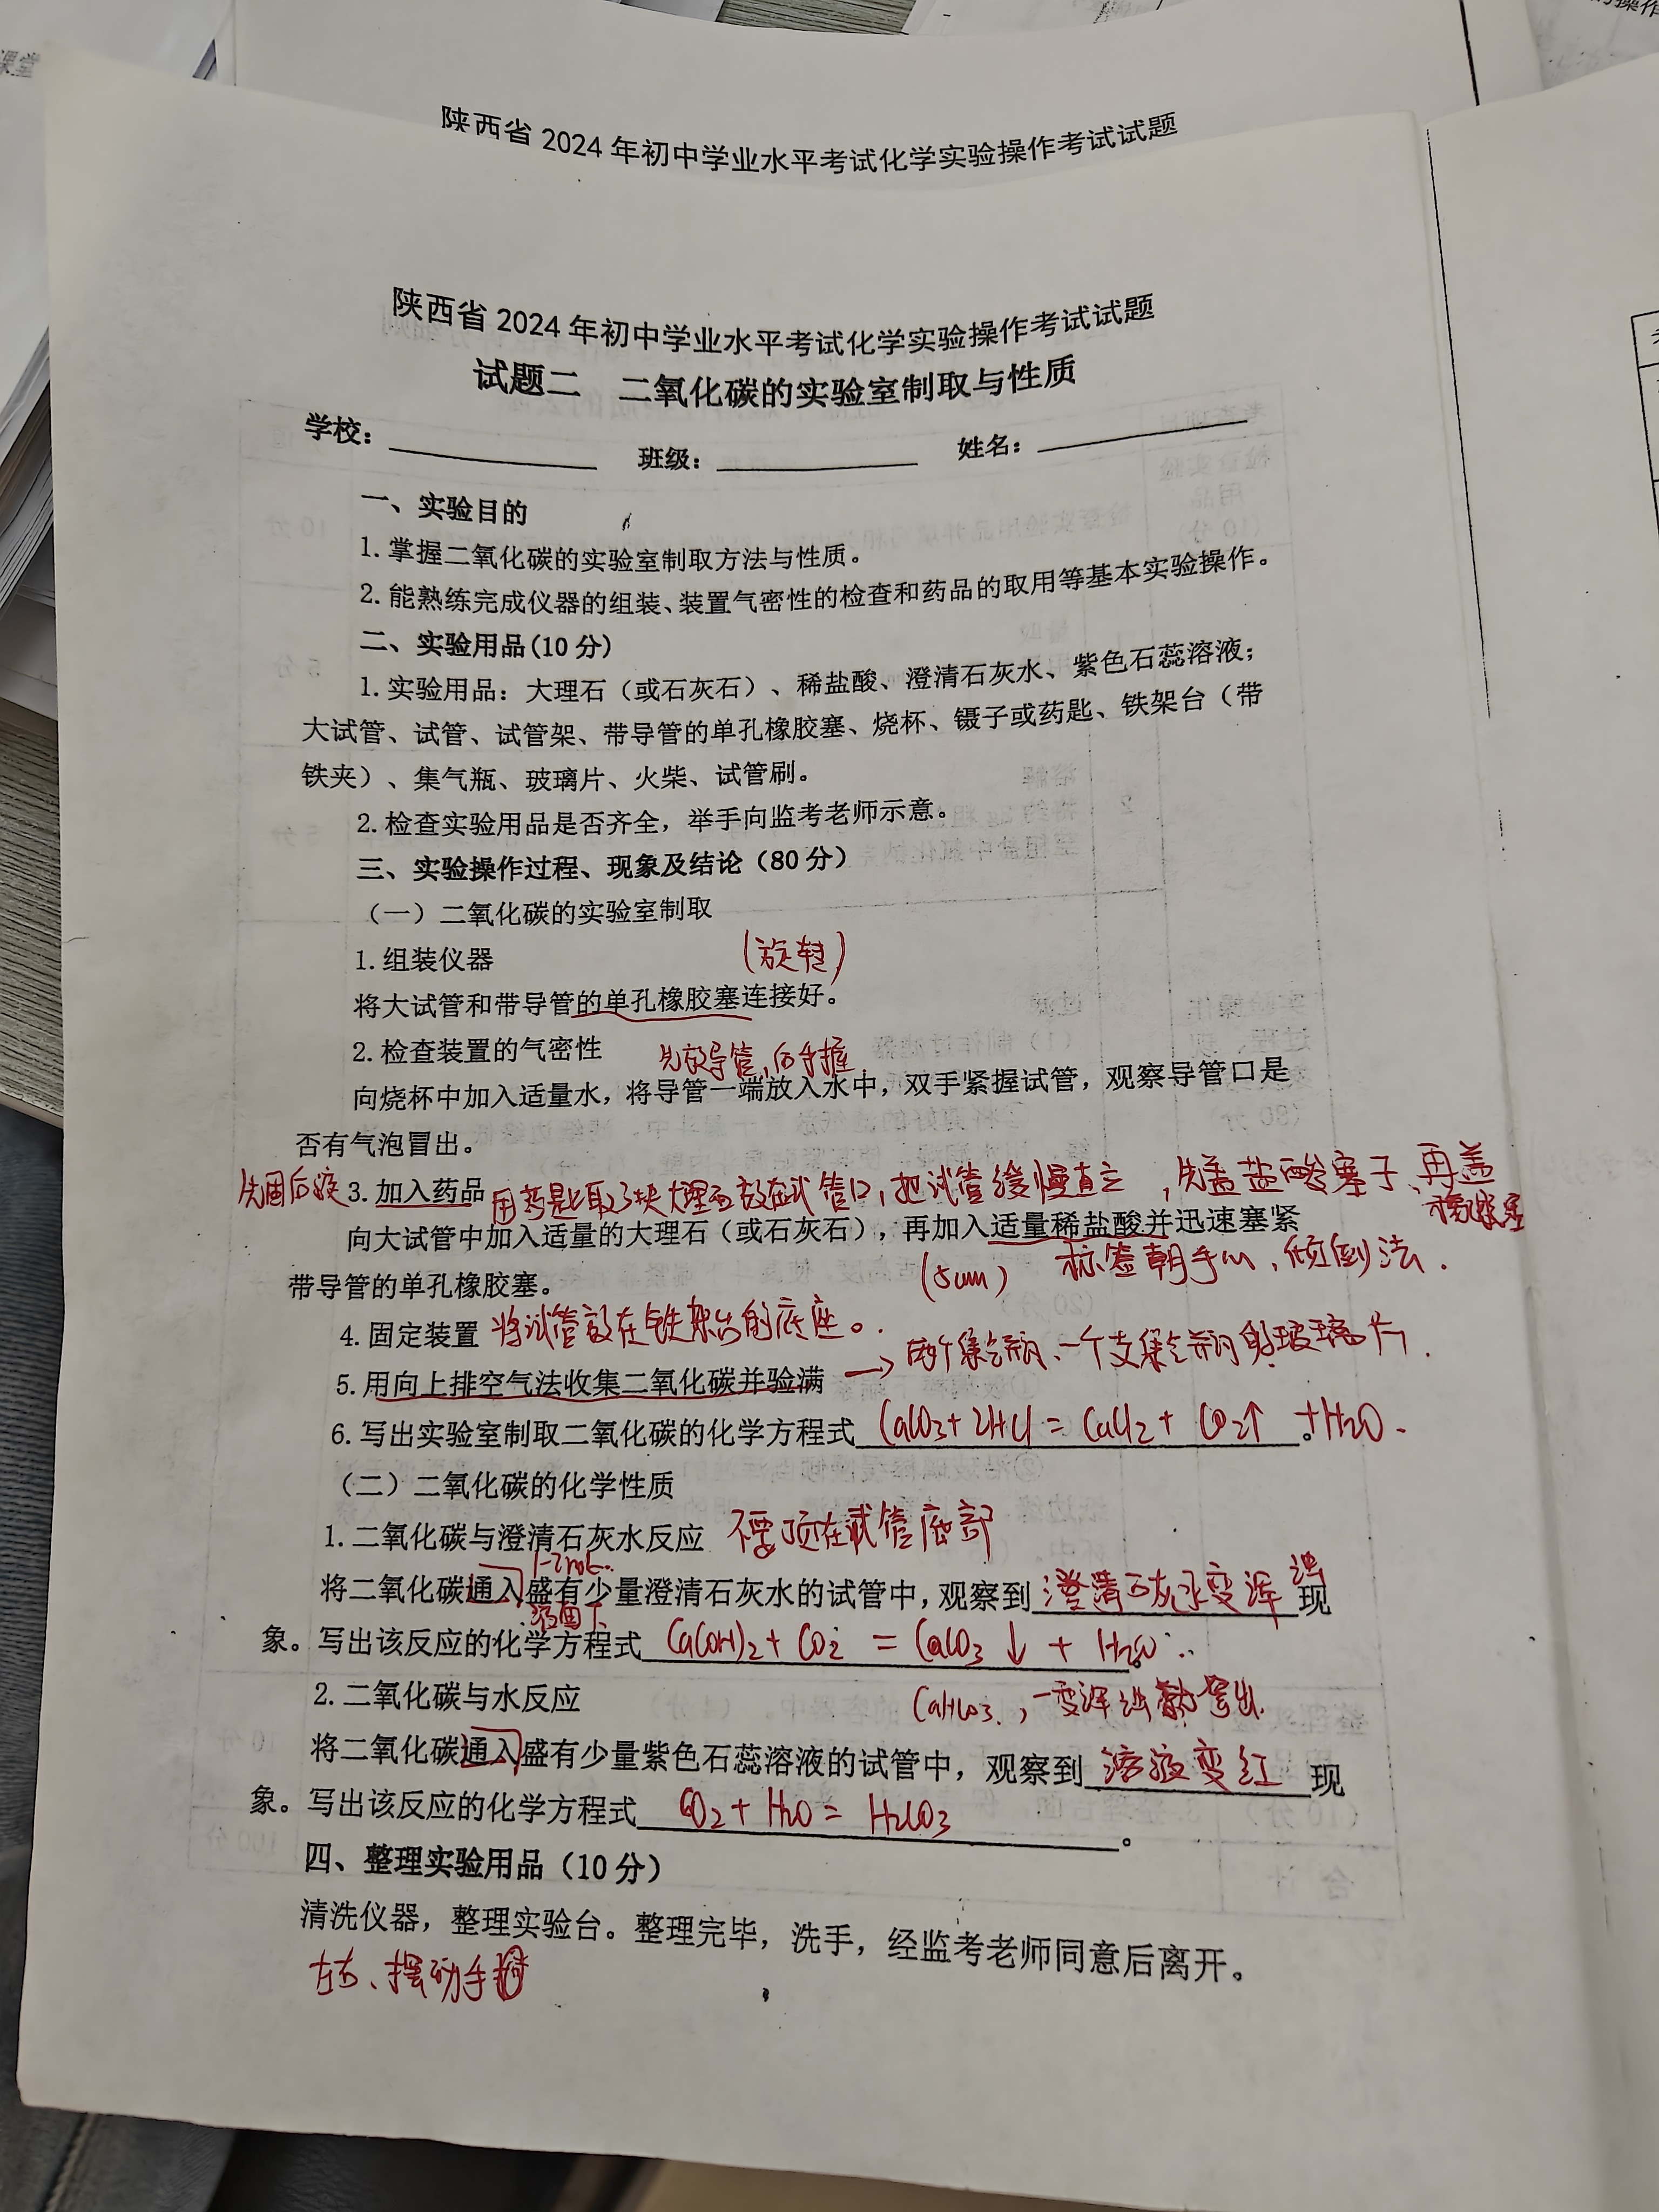 课堂
陕西省2024年初中学业水平考试化学实验操作考试试题
陕西省2024年初中学业水平考试化学实验操作考试试题
试题二 二氧化碳的实验室制取与性质
学校： 班级： 姓名：
一、实验目的
1.掌握二氧化碳的实验室制取方法与性质。
2.能熟练完成仪器的组装、装置气密性的检查和药品的取用等基本实验操作。
二、实验用品(10分)
1.实验用品：大理石（或石灰石）、稀盐酸、澄清石灰水、紫色石蕊溶液；
大试管、试管、试管架、带导管的单孔橡胶塞、烧杯、镊子或药匙、铁架台（带
铁夹）、集气瓶、玻璃片、火柴、试管刷。
2.检查实验用品是否齐全，举手向监考老师示意。
三、实验操作过程、现象及结论（80分）
（一）二氧化碳的实验室制取
1.组装仪器 (旋转)
将大试管和带导管的单孔橡胶塞连接好。
2.检查装置的气密性 先放导管,后手握
向烧杯中加入适量水，将导管一端放入水中，双手紧握试管，观察导管口是
否有气泡冒出。
先固后液 3.加入药品 用药匙取3块大理石放在试管口,把试管缓慢直立,先盖盐酸塞子、再盖
橡胶塞
向大试管中加入适量的大理石（或石灰石），再加入适量稀盐酸并迅速塞紧
(5cm) 标签朝手心,倾倒法.
带导管的单孔橡胶塞。
4.固定装置 将试管放在铁架台的底座。
5.用向上排空气法收集二氧化碳并验满 → 两个集气瓶、一个支集气瓶 玻璃片.
6.写出实验室制取二氧化碳的化学方程式 CaCO3+2HCl=CaCl2+CO2↑+H2O.
（二）二氧化碳的化学性质
1.二氧化碳与澄清石灰水反应 不要顶在试管底部
1-2mL
将二氧化碳通入盛有少量澄清石灰水的试管中，观察到 澄清石灰水变浑浊 现
液面下
象。写出该反应的化学方程式 Ca(OH)2+CO2=CaCO3↓+H2O
2.二氧化碳与水反应 CaHCO3,一变浑浊 拿出.
将二氧化碳通入盛有少量紫色石蕊溶液的试管中，观察到 溶液变红 现
象。写出该反应的化学方程式 CO2+H2O=H2CO3。
四、整理实验用品（10分）
清洗仪器，整理实验台。整理完毕，洗手，经监考老师同意后离开。
左右、摆动手